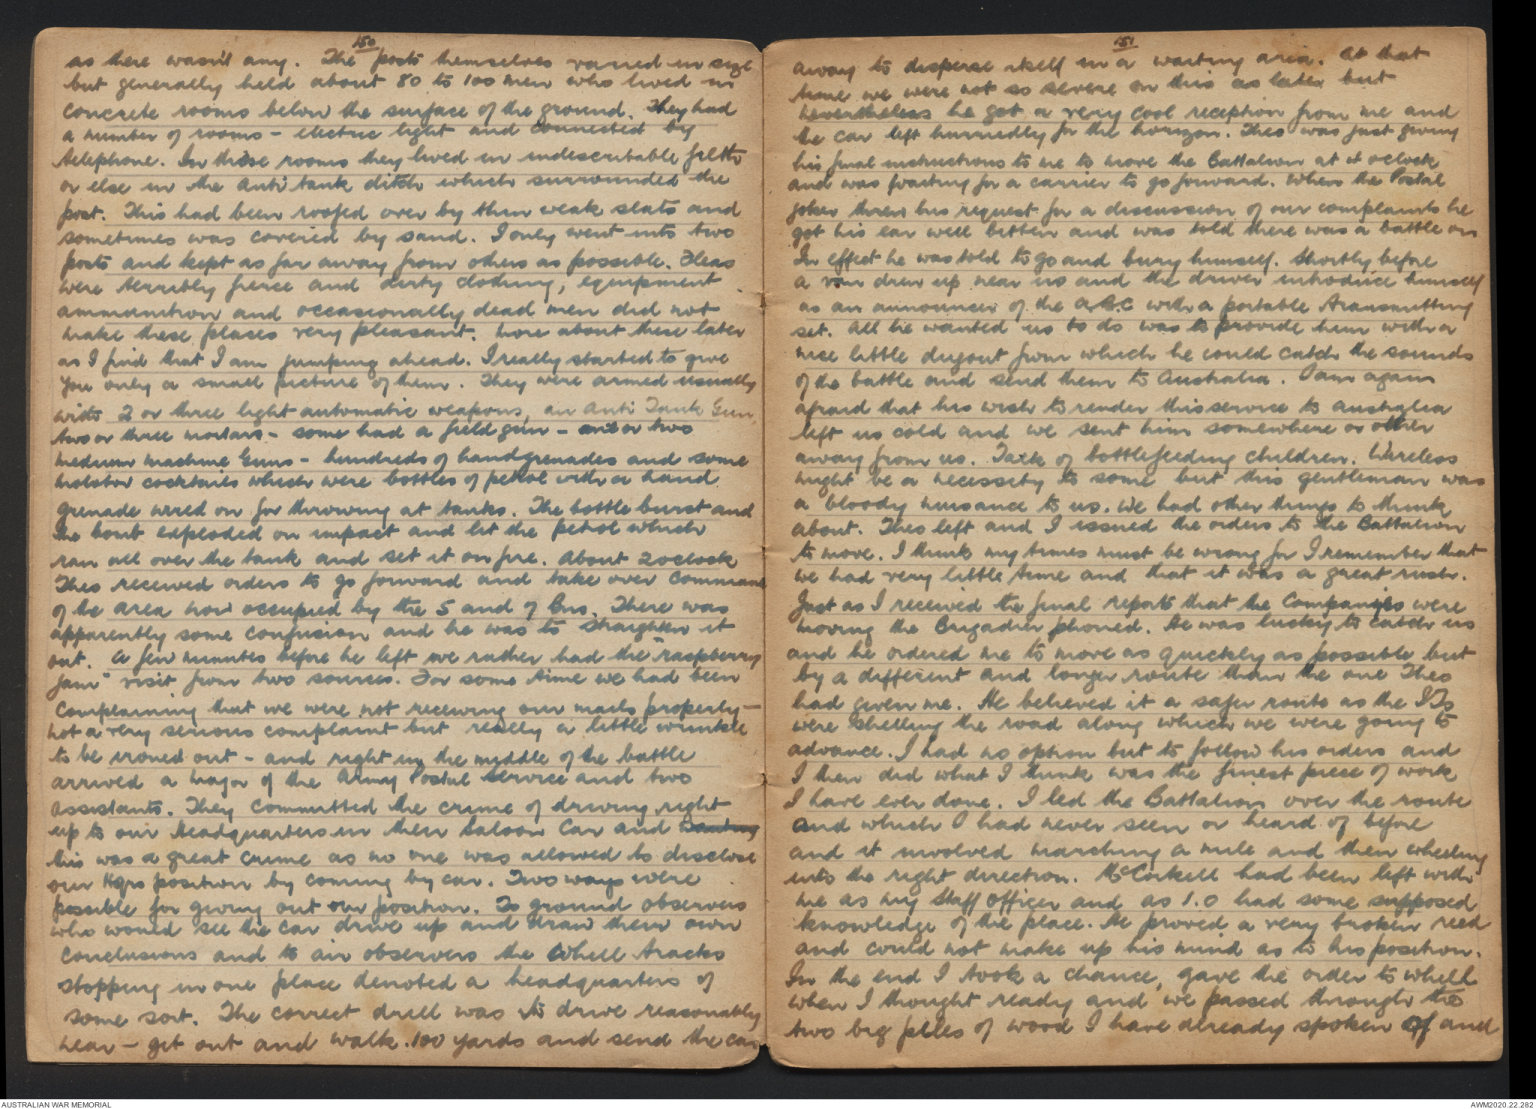 150
as there wasn't any. The posts themselves varied in size
but generally held about 80 to 100 men who lived in
concrete rooms below the surface of the ground. They had
a number of rooms - electric light and connected by
telephone. In these rooms they lived in indescribable filth
or else in the anti tank ditch which surrounded the
post. This had been roofed over by thin weak slats and
sometimes was covered by sand. I only went into two
posts and kept as far away from others as possible. Fleas
were terribly fierce and dirty clothing, equipment
ammunition and occasionally dead men did not
make these places very pleasant. More about these later
as I find that I am jumping ahead. I really started to give
you only a small picture of them. They were armed usually
with 2 or three light automatic weapons, an Anti Tank Gun,
two or three mortars - some had a field gun - one or two
medium machine Guns - hundreds of handgrenades and some
molotov cocktails which were bottles of petrol with a hand
grenade wired on for throwing at tanks. The bottle burst and
the bomb exploded on impact and lit the petrol which
ran all over the tank and set it on fire. About 2 oclock
Theo received orders to go forward and take over command
of the area now occupied by the 5 and 7 Bns. There was
apparently some confusion and he was to straighten it
out. A few minutes before he left we rather had the "raspberry
jam" visit from two sources. For some time we had been
complaining that we were not receiving our mails properly -
not a very serious complaint but really a little wrinkle
to be ironed out - and right in the middle of the battle
arrived a major of the Army Postal Service and two
assistants. They committed the crime of driving right
up to our headquarters in their Saloon Car and
this was a great crime as no one was allowed to disclose
our Hqrs position by coming by car. Two ways were
possible for giving out our position. To ground observers
who would see the car drive up and draw their own
conclusions and to air observers the wheel tracks
stopping in one place denoted a headquarters of
some sort. The correct drill was to drive reasonably
near - get out and walk 100 yards and send the car
151
away to disperse itself in a waiting area. At that
time we were not so severe on this as later but
nevertheless he got a very cool reception from me and
the car left hurriedly for the horizon. Theo was just giving
his final instructions to me to move the Battalion at 4 oclock
and was waiting for a carrier to go forward. When the Postal
joker threw his request for a discussion of our complaints he
got his ear well bitten and was told there was a battle on
In effect he was told to go and bury himself. Shortly before
a van drew up near us and the driver introduce himself
as an announcer of the A.B.C with a portable transmitting
set. All he wanted us to do was to provide him with a
nice little dugout from which he could catch the sounds
of the battle and send them to Australia. I am again
afraid that his wish to render this service to Australia
left us cold and we sent him somewhere or other
away from us. Talk of bottlefeeding children. Wireless
might be a necessity to some but this gentleman was
a bloody nuisance to us. We had other things to think
about. Theo left and I issued the orders to the Battalion
to move. I think my times must be wrong for I remember that
we had very little time and that it was a great rush.
Just as I received the final reports that the Companies were
moving the Brigadier phoned. He was lucky to catch us
and he ordered me to move as quickly as possible but
by a different and longer route than the one Theo
had given me. He believed it a safer route as the I Is
were shelling the road along which we were going to
advance. I had no option but to follow his orders and
I then did what I think was the finest piece of work
I have ever done. I led the Battalion over the route
and which I had never seen or heard of before
and it involved marching a mile and then wheeling
into the right direction. McCorkell had been left with
me as my Staff Officer and as I.O had some supposed
knowledge of the place. He proved a very broken reed
and could not make up his mind as to his position.
In the end I took a chance, gave the order to wheel
when I thought ready and we passed through the
two big piles of wood I have already spoken of and
AUSTRALIAN WAR MEMORIAL
AWM2020.22.282